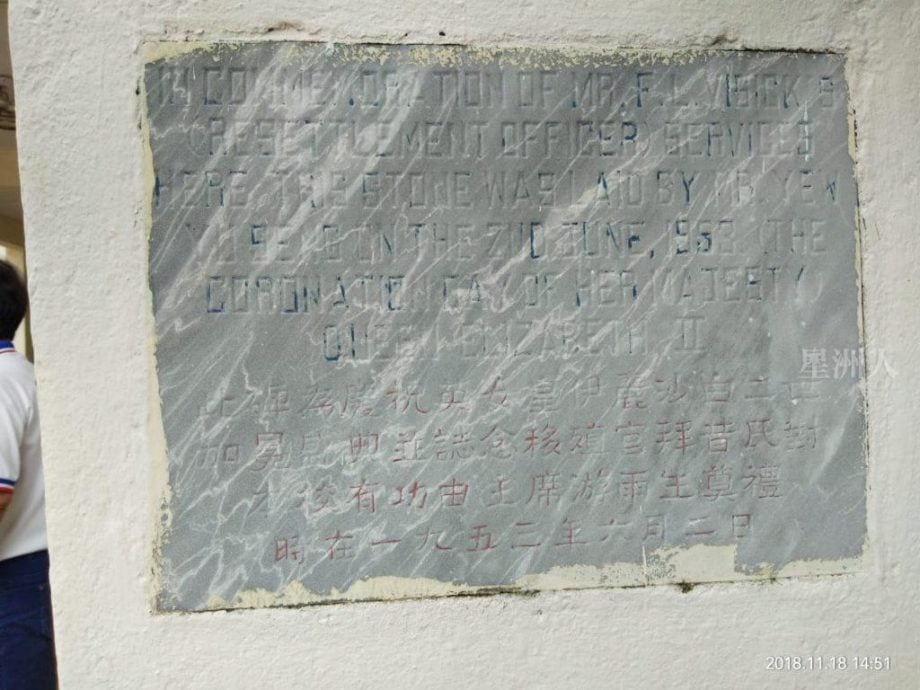 IN COMMEMORATION OF MR. F. L. VISICK, S
(RESETTLEMENT OFFICER) SERVICES
HERE, THIS STONE WAS LAID BY MR. YEW
SENG ON THE 2ND JUNE, 1953 (THE
CORONATION DAY OF HER MAJESTY
QUEEN ELIZABETH II
星洲人
此碑為慶祝英女皇伊麗沙白二世
加冕盛典並誌念移殖官拜昔氏對
本校有功由主席游雨生奠禮
時在一九五三年六月二日
2018.11.18 14:51